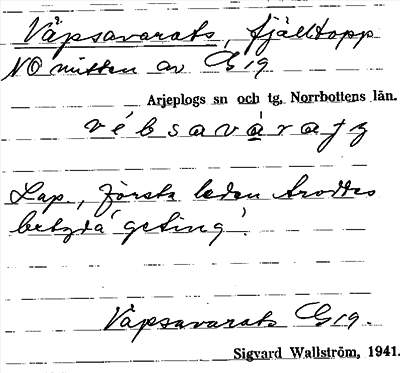 Våpsavarats, fjälltopp
NO mitten av G19
Arjeplogs sn och tg, Norrbottens län.
Lap., första leden troddes
betyda 'geting'.
Våpsavarats G19.
Sigvard Wallström, 1941.